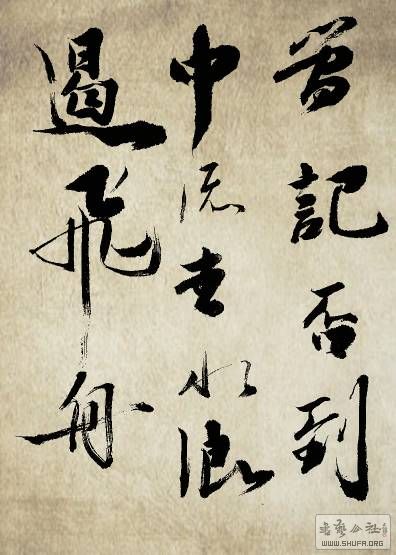 曾記否到
中流击水浪
遏飛舟
書藝公社
WWW.SHUFA.ORG